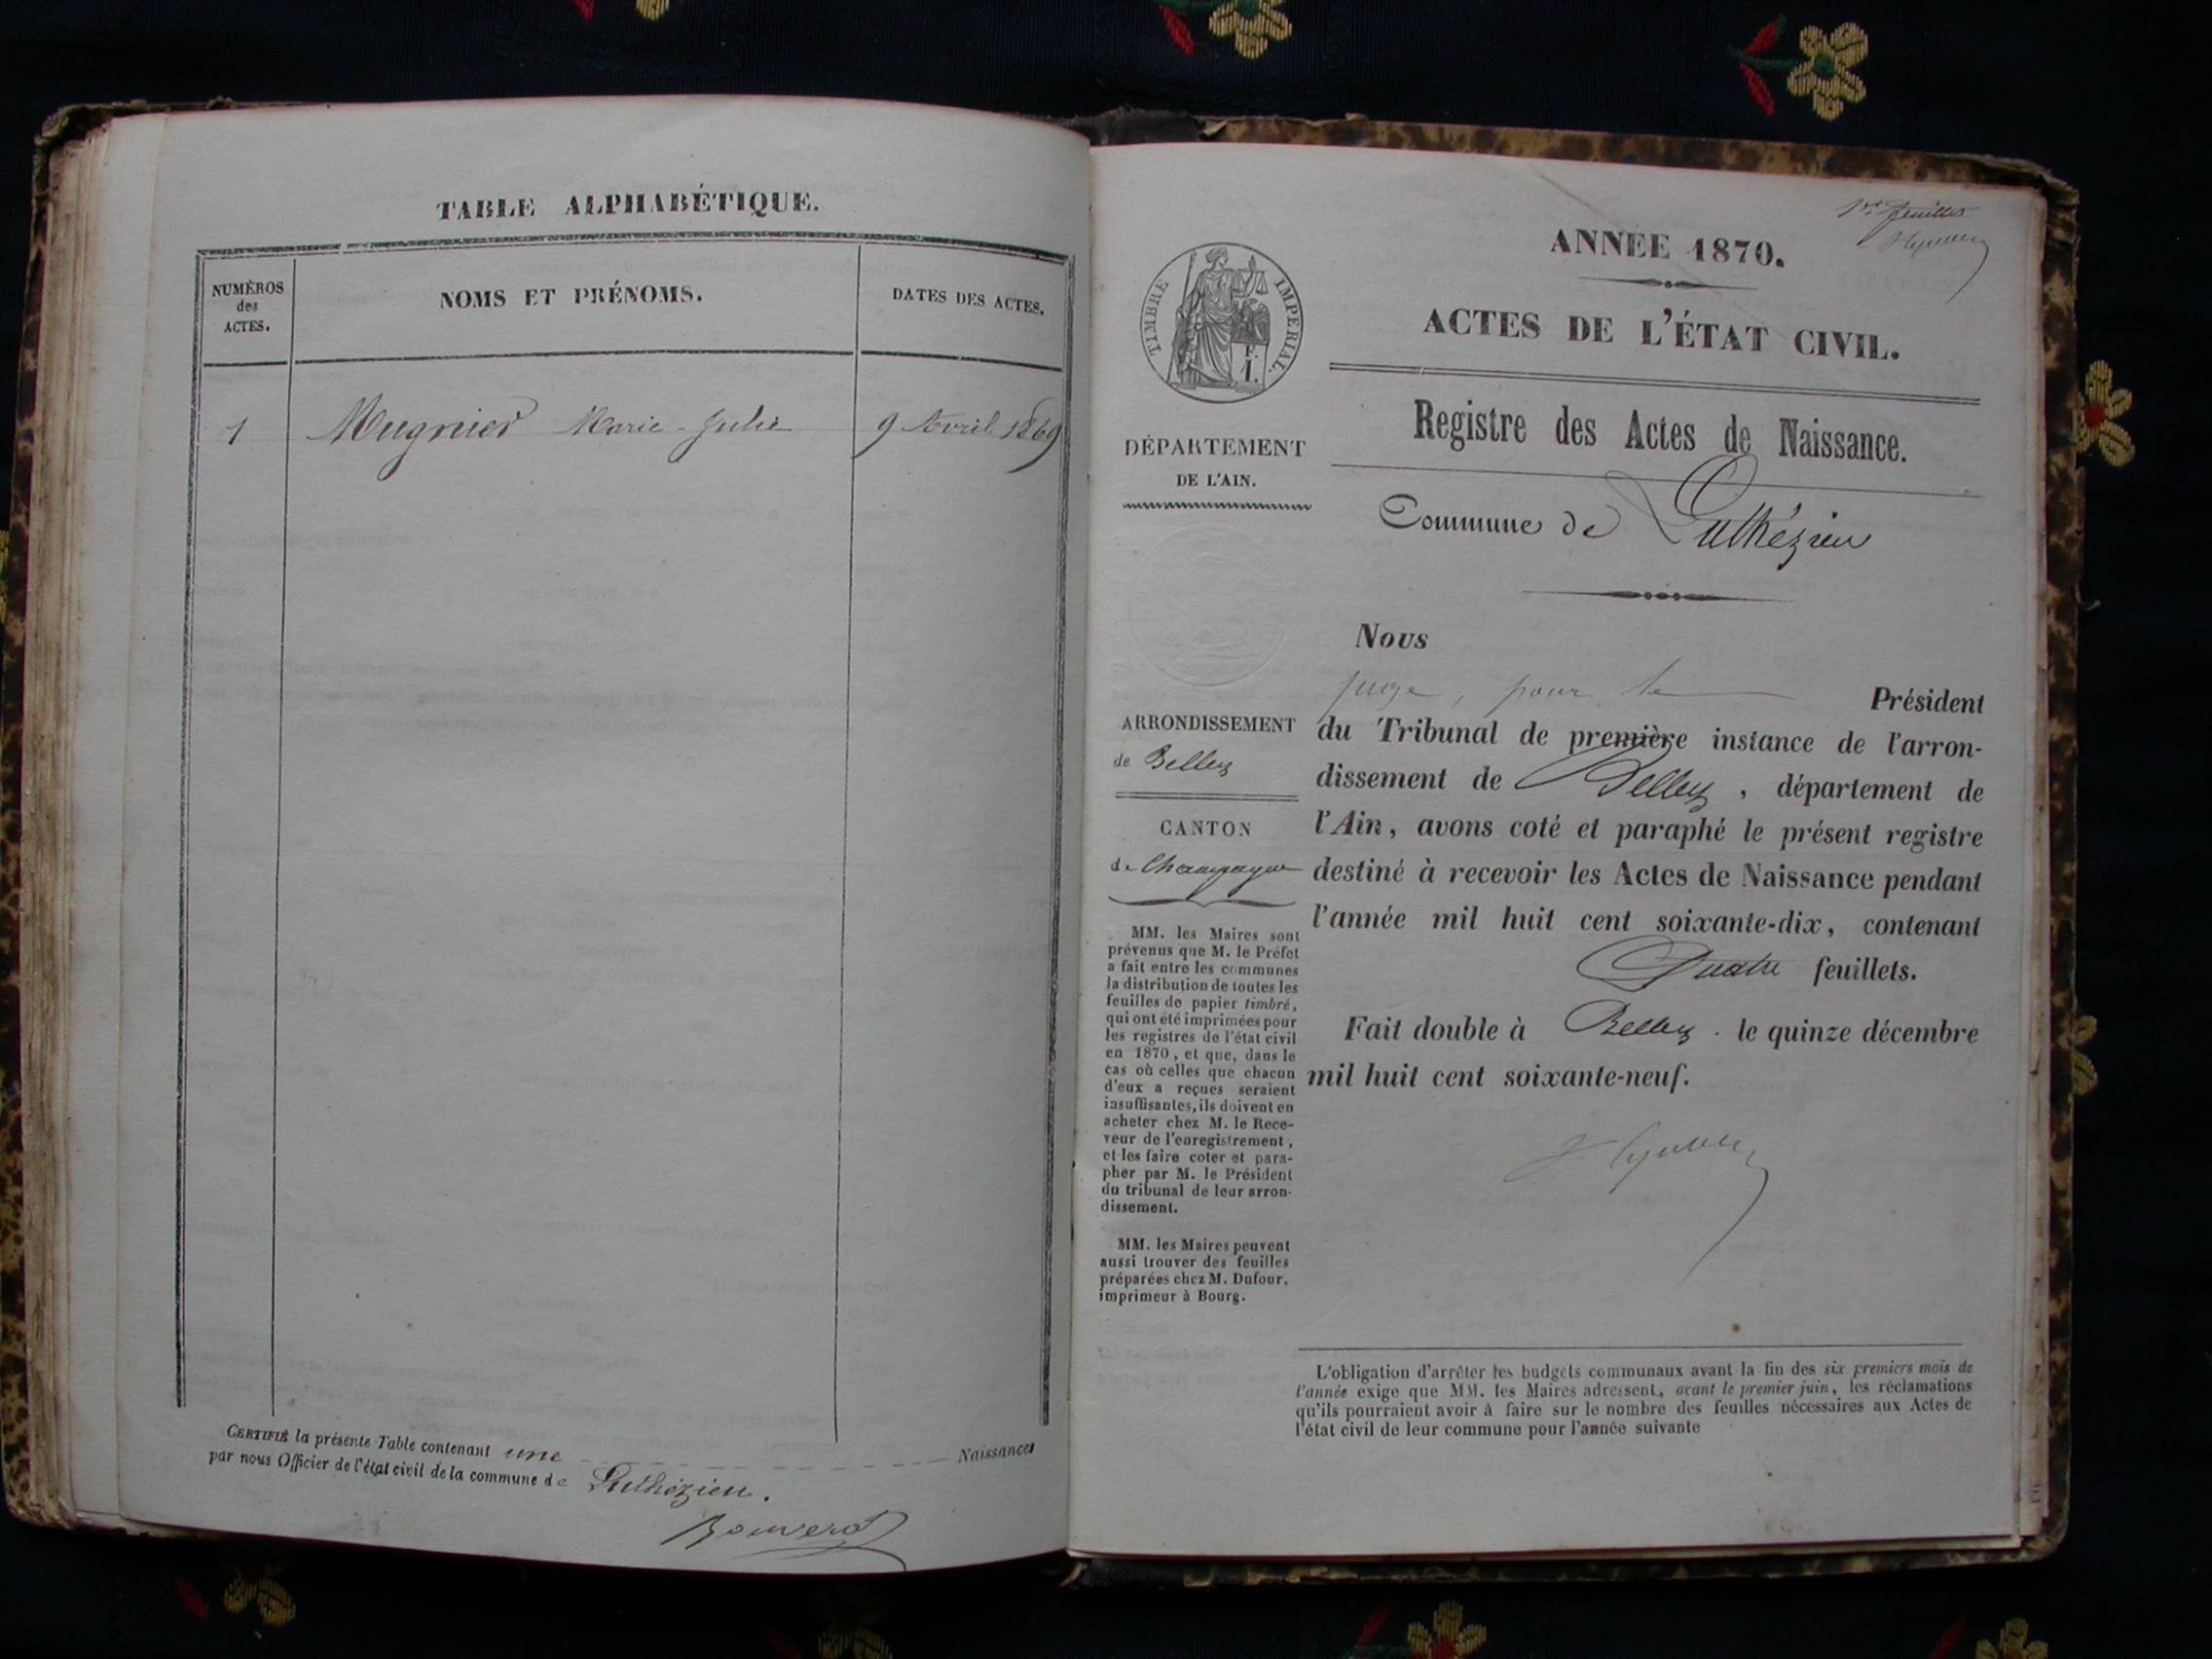 TABLE ALPHABÉTIQUE.
NUMÉROS
des
ACTES.
NOMS ET PRÉNOMS.
DATES DES ACTES.
1 Mugnier Marie-Julie 9 Avril 1869
CERTIFIÉ la présente Table contenant une Naissances
par nous Officier de l'état civil de la commune de Luthézieu.
Bouverot
1er feuillet
ANNÉE 1870.
ACTES DE L'ÉTAT CIVIL.
TIMBRE IMPERIAL.
F.
1.
Registre des Actes de Naissance.
DÉPARTEMENT
DE L'AIN.
Commune de Luthézieu
Nous
juge, pour le Président
du Tribunal de première instance de l'arron-
dissement de Belley, département de
l'Ain, avons coté et paraphé le présent registre
destiné à recevoir les Actes de Naissance pendant
l'année mil huit cent soixante-dix, contenant
Quatre feuillets.
Fait double à Belley. le quinze décembre
mil huit cent soixante-neuf.
ARRONDISSEMENT
de Belley
CANTON
de Champagne
MM. les Maires sont
prévenus que M. le Préfet
a fait entre les communes
la distribution de toutes les
feuilles de papier timbré,
qui ont été imprimées pour
les registres de l'état civil
en 1870, et que, dans le
cas où celles que chacun
d'eux a reçues seraient
insuffisantes, ils doivent en
acheter chez M. le Rece-
veur de l'enregistrement,
et les faire coter et para-
pher par M. le Président
du tribunal de leur arron-
dissement.
MM. les Maires peuvent
aussi trouver des feuilles
préparées chez M. Dufour,
imprimeur à Bourg.
L'obligation d'arrêter les budgets communaux avant la fin des six premiers mois de
l'année exige que MM. les Maires adressent, avant le premier juin, les réclamations
qu'ils pourraient avoir à faire sur le nombre des feuilles nécessaires aux Actes de
l'état civil de leur commune pour l'année suivante